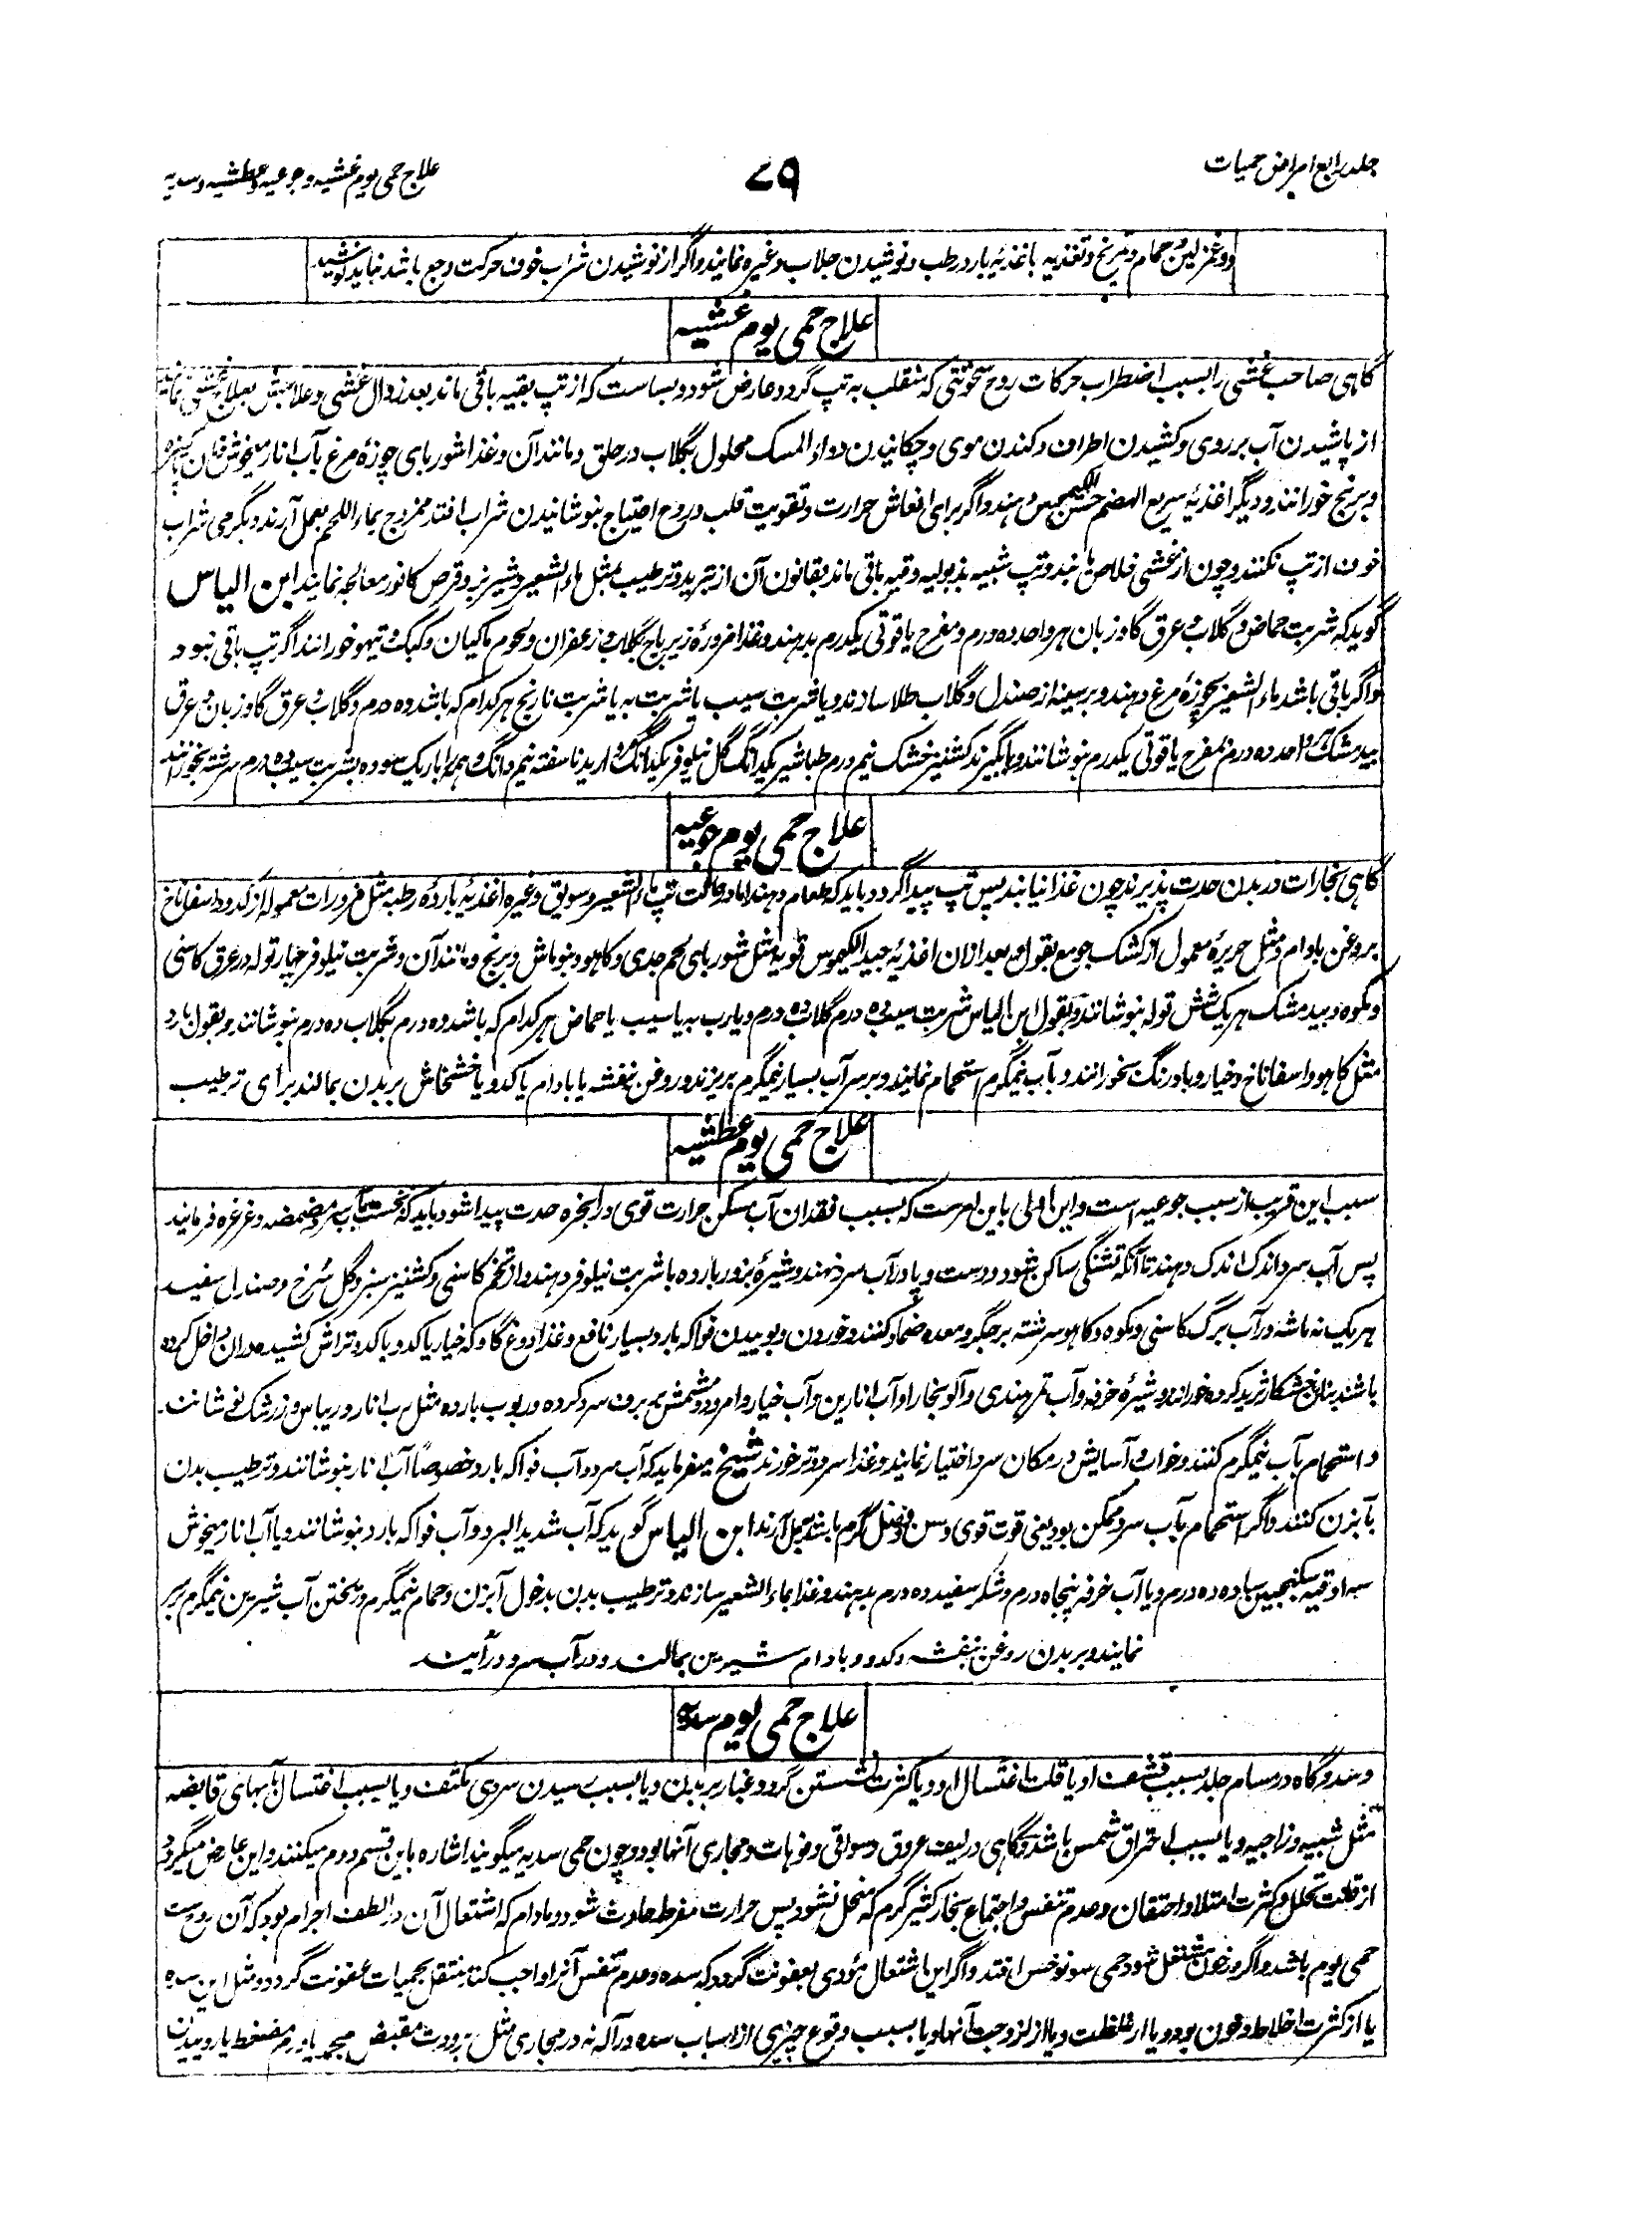 جلد رابع امراض حمیات
۷۹
علاج حمی یوم غشیه و جوعیه و عطشیه و سدیه
و غمز لین و حمام و تمریخ و تغذیه باغذیهٔ بارد رطب و نوشیدن جلاب و غیره نمایند و اگر از نوشیدن شراب خوف حرکت وجع باشد نباید نوشید
علاج حمی یوم غشیه
گاهی صاحب غشی را بسبب اضطراب حرکات روح سخونتی که منقلب به تپ گردد عارض شود و بساست که از تپ بقیه باقی ماند بعد زوال غشی و علاجش بعلاج غشی نمایند
از پاشیدن آب بر روی و کشیدن اطراف و کندن موی و چکانیدن دواء المسک محلول بگلاب در حلق و مانند آن و غذا شوربای چوزهٔ مرغ بآب انار میخوش
و برنج خورانند و دیگر اغذیهٔ سریع الهضم حسن الکیموس دهند و اگر برای انعاش حرارت و تقویت قلب و روح احتیاج بنوشانیدن شراب افتد ممزوج بماء اللحم بعمل آرند و بگرمی شراب
خوف از تپ نکنند و چون از غشی خلاص یابند و تپ شبیه بذبولیه و قیه باقی ماند بقانون آن از تبرید و ترطیب بمثل ماء الشعیر و شیر بز و قرص کافور معالجه نمایند ابن الیاس
گوید که شربت حماض و گلاب و عرق گاوزبان هر واحد ده درم و مفرح یاقوتی یکدرم بدهند و غذا مزورهٔ زیرباج بگلاب و زعفران و لحوم ماکیان و کبک و تیهو خورانند اگر تپ باقی نبود
و اگر باقی باشد ماء الشعیر بچوزهٔ مرغ دهند و بر سینه از صندل و گلاب طلا سازند و یا شربت سیب یا شربت به یا شربت نارنج هر کدام که باشد ده درم و گلاب و عرق گاوزبان و عرق
بیدمشک هر واحد ده درم مفرح یاقوتی یکدرم بنوشانند و یا بگیرند کشنیز خشک نیم درم طباشیر یکدانگ گل نیلوفر یکدانگ مروارید ناسفته نیم دانگ و همه را باریک سوده بشربت سیب ده درم سرشته بخورانند
علاج حمی یوم جوعیه
گاهی بخارات در بدن حدت پذیرند چون غذا نیابند پس تپ پیدا گردد باید که طعام دهند اما در حالت تپ ماء الشعیر و سویق و غیره اغذیهٔ باردهٔ رطبه مثل مزورات معموله از کدو و اسفاناخ
بروغن بادام و مثل حریرهٔ معمول از کشک جو مع بقول و بعد ازان اغذیهٔ جید الکیموس قویه مثل شوربای لحم جدی و کاهو و بنوماش و برنج و مانند آن و شربت نیلوفر چهار توله در عرق کاسنی
و مکوه و بیدمشک هر یک شش توله بنوشانند و بقول ابن الیاس شربت سیب ده درم گلاب ده درم و یا رب به یا سیب یا حماض هر کدام که باشد ده درم بگلاب ده درم بنوشانند و بقول بارد
مثل کاهو و اسفاناخ و خیار و بادرنگ بخورانند و بآب نیمگرم استحمام نمایند و بر سر آب بسیار نیمگرم بریزند و روغن بنفشه یا بادام یا کدو یا خشخاش بر بدن بمالند برای ترطیب
علاج حمی یوم عطشیه
سبب این قریب از سبب جوعیه است و این اولی باین امرست که بسبب فقدان آب مسکن حرارت قوی در ابخره حدت پیدا شود باید که نخست بآب سرد مضمضه و غرغره فرمایند
پس آب سرد اندک اندک دهند تا آنکه تشنگی ساکن شود و دست و پا در آب سرد نهند و شیرهٔ بزور بارده با شربت نیلوفر دهند و از تخم کاسنی و کشنیز سبز و گل سرخ و صندل سفید
هر یک نه ماشه در آب برگ کاسنی و مکوه و کاهو سرشته بر جگر و معده ضماد کنند و خوردن و بوییدن فواکه بارد بسیار نافع و غذا دوغ گاو که خیار یا کدو یا کدو تراش کشیده دران داخل کرده
باشند بنان خشکار ثرید کرده خورانند و شیرهٔ خرفه و آب تمر هندی و آلو بخارا و آب انارین و آب خیار و امرود و مشمش ببرف سرد کرده و ربوب بارده مثل رب انار و ریباس و زرشک نوشانند
و استحمام بآب نیمگرم کنند و خواب و آسایش در مکان سرد اختیار نمایند و غذا سرد و تر خورند شیخ میفرماید که آب سرد و آب فواکه بارد خصوصاً آب انار بنوشانند و ترطیب بدن
بآبزن کنند و اگر استحمام بآب سرد ممکن بود یعنی قوت قوی و سن و فصل گرم باشد بعمل آرند ابن الیاس گوید که آب شدید البرد و آب فواکه بارد بنوشانند و یا آب انار میخوش
سه اوقیه سکنجبین ساده ده درم و یا آب خرفه پنجاه درم و شکر سفید ده درم بدهند و غذا بماء الشعیر سازند و ترطیب بدن بدخول آبزن و حمام نیمگرم و ریختن آب شیرین نیمگرم بر سر
نمایند و بر بدن روغن بنفشه و کدو و بادام شیرین بمالند و در آب سرد در آیند
علاج حمی یوم سدیه
و سده گاه در مسام جلد بسبب قشف او یا قلت اغتسال او و یا کثرت نشستن گرد و غبار بر بدن و یا بسبب رسیدن سردی مکثف و یا بسبب اغتسال بآبهای قابضه
مثل شبیه و زاجیه و یا بسبب احتراق شمس باشد و گاهی در لیف عروق و سواقی و فوهات و مجاری آنها بود و چون حمی سدیه میگویند اشاره باین قسم دوم میکنند و این عارض میگردد
از قلت تحلل و کثرت امتلا و احتقان و عدم تنفس و اجتماع بخار کثیر گرم که منحل نشود پس حرارت مفرط حادث شود و مادام که اشتعال آن در الطف اجرام بود که آن روح ست
حمی یوم باشد و اگر در خون مشتعل شود حمی سونوخس افتد و اگر این اشتعال مؤدی بعفونت گردد که سده و عدم تنفس آنرا واجب کند منتقل بحمیات عفونت گردد و مثل این سده
یا از کثرت اخلاط و خون بود و یا از غلظت و یا از لزوجت آنها و یا بسبب وقوع چیزی از اسباب سده در آله نه در مجاری مثل برودت مقبض مجمد یا ورم مضغط یا روییدن